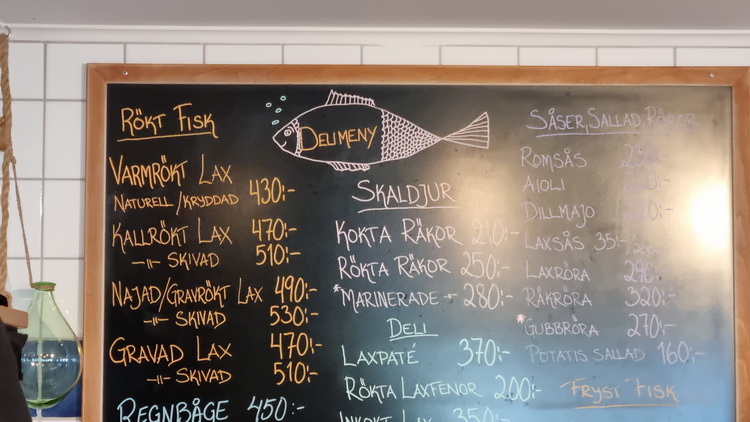 RÖKT FISK
VARMRÖKT LAX
NATURELL/KRYDDAD 430:-
KALLRÖKT LAX 470:-
-"- SKIVAD 510:-
NAJAD/GRAVRÖKT LAX 490:-
-"- SKIVAD 530:-
GRAVAD LAX 470:-
-"- SKIVAD 510:-
REGNBÅGE 450:-
DELIMENY
SKALDJUR
KOKTA RÄKOR
RÖKTA RÄKOR 250:-
*MARINERADE -"- 280:-
DELI
LAXPATÉ 370:-
RÖKTA LAXFENOR 200:-
INKOKT LAX 350:-
SÅSER, SALLAD, RÖROR
ROMSÅS
AIOLI
DILLMAJO
LAXSÅS 35:-
LAXRÖRA 290:-
RÄKRÖRA 320:-
*GUBBRÖRA 270:-
POTATIS SALLAD 160:-
FRYST FISK